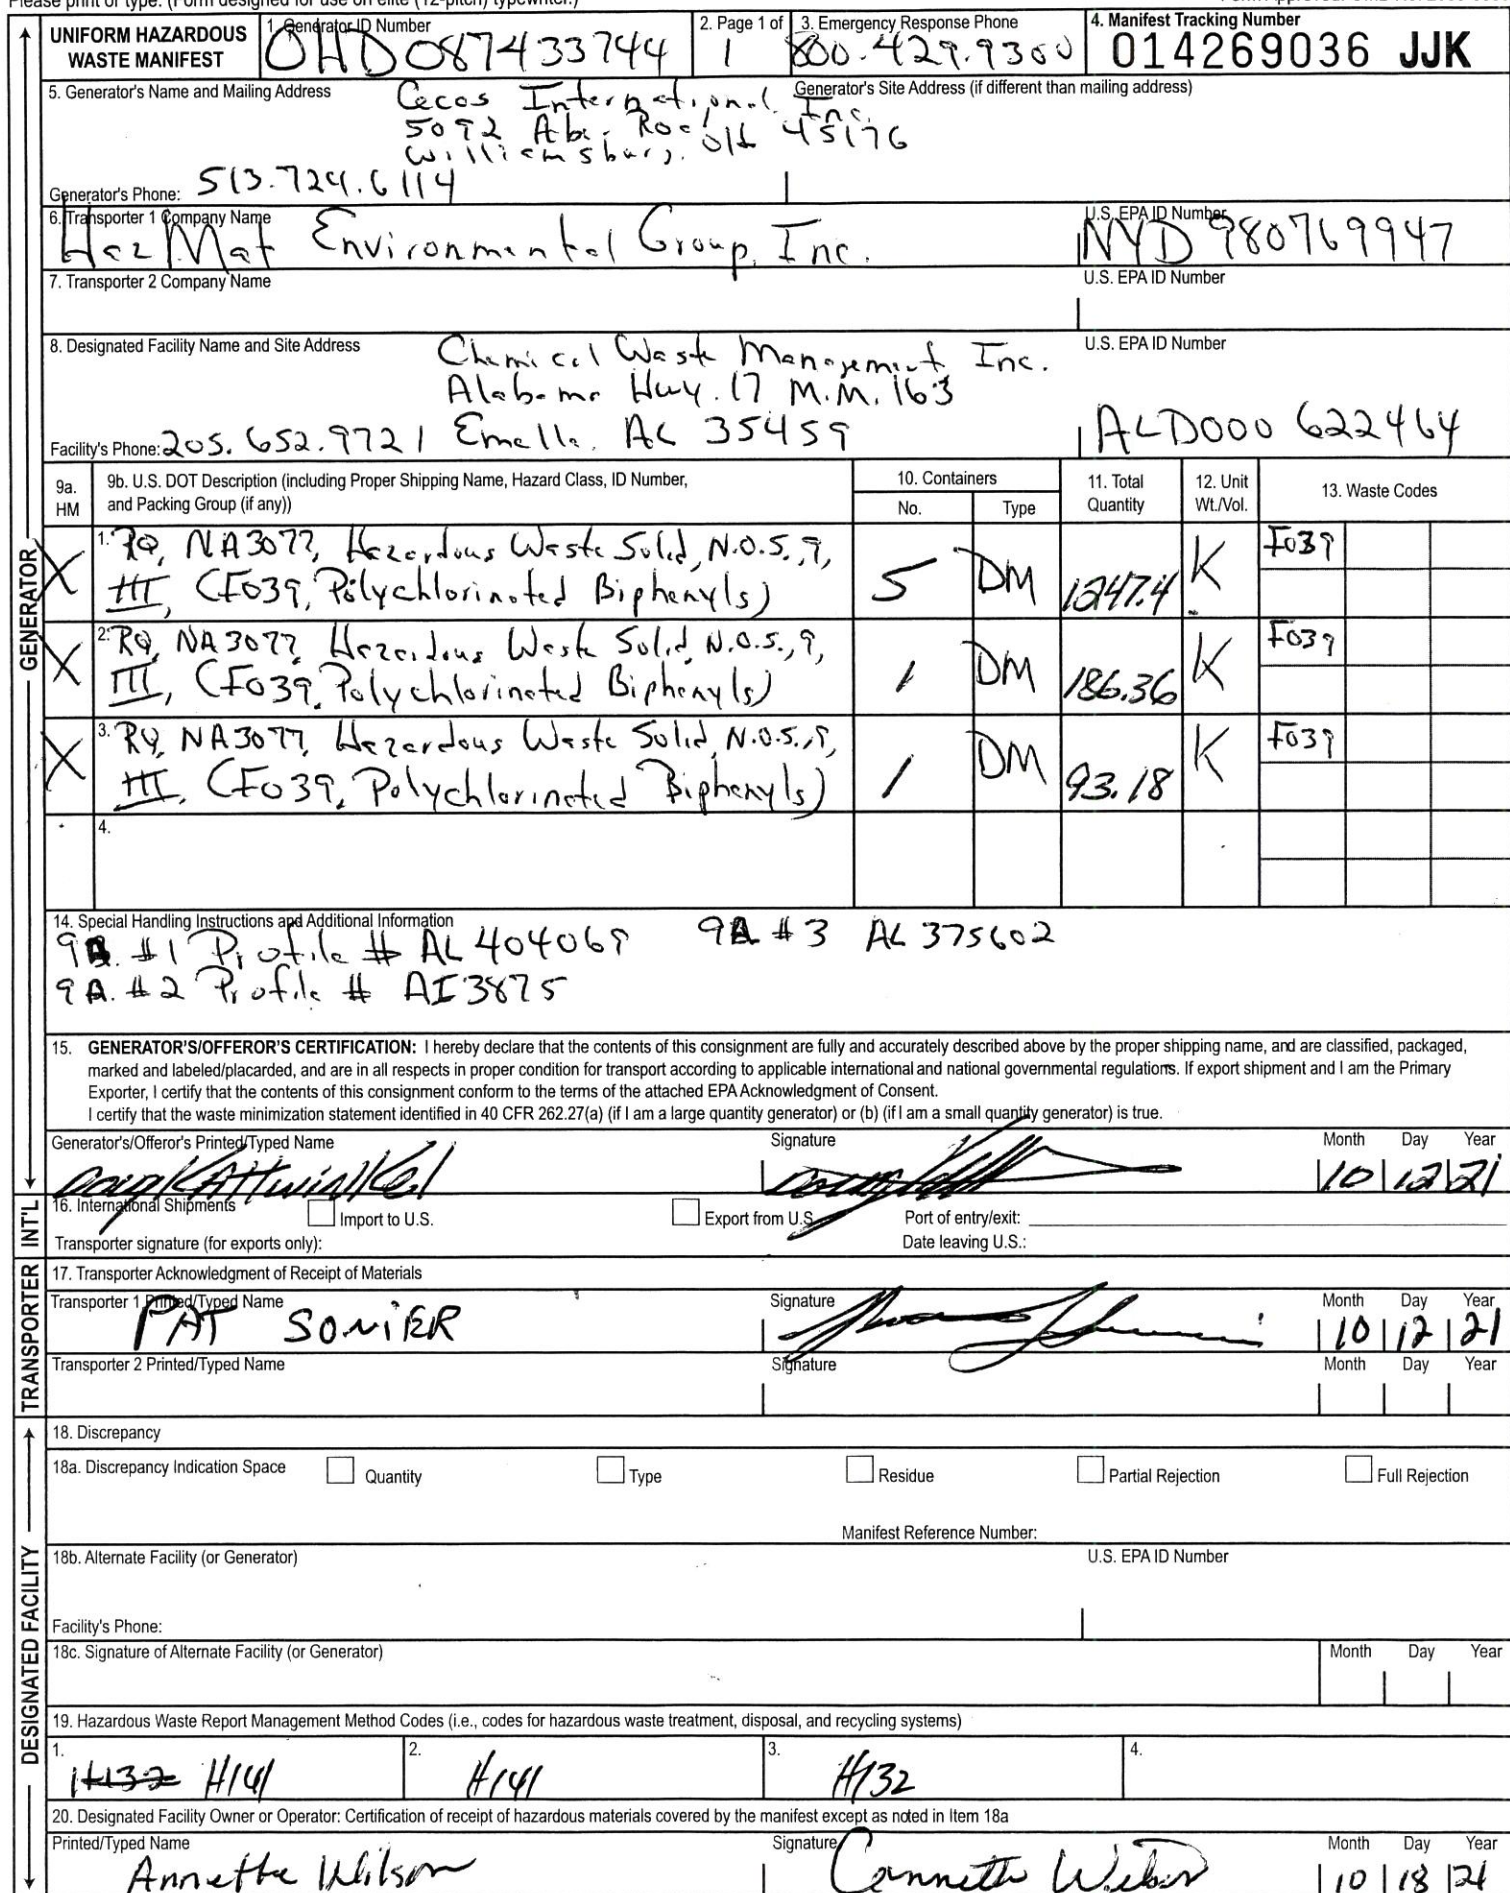 Please print or type. (Form designed for use on elite (12-pitch) typewriter.)
UNIFORM HAZARDOUS WASTE MANIFEST
1. Generator ID Number
OHD087433744
2. Page 1 of
1
3. Emergency Response Phone
800.429.9300
4. Manifest Tracking Number
014269036 JJK
5. Generator's Name and Mailing Address
Generator's Site Address (if different than mailing address)
Cecos International Inc.
5092 Aber Road
Williamsburg, OH 45176
Generator's Phone: 513.724.6114
6. Transporter 1 Company Name
Haz Mat Environmental Group, Inc.
U.S. EPA ID Number
NYD 980769947
7. Transporter 2 Company Name
U.S. EPA ID Number
8. Designated Facility Name and Site Address
Chemical Waste Management Inc.
Alabama Hwy. 17 M.M. 163
Emelle, AL 35459
Facility's Phone: 205.652.9721
U.S. EPA ID Number
ALD000 622464
9a. HM
9b. U.S. DOT Description (including Proper Shipping Name, Hazard Class, ID Number,
and Packing Group (if any))
10. Containers
No.
Type
11. Total Quantity
12. Unit Wt./Vol.
13. Waste Codes
X
1. RQ, NA3077, Hazardous Waste Solid, N.O.S., 9,
III, (F039, Polychlorinated Biphenyls)
5
DM
1247.4
K
F039
X
2. RQ, NA3077, Hazardous Waste Solid, N.O.S., 9,
III, (F039, Polychlorinated Biphenyls)
1
DM
186.36
K
F039
X
3. RQ, NA3077, Hazardous Waste Solid, N.O.S., 9,
III, (F039, Polychlorinated Biphenyls)
1
DM
93.18
K
F039
4.
14. Special Handling Instructions and Additional Information
9A. #1 Profile # AL404069 9A #3 AL 375602
9A. #2 Profile # AI3875
15. GENERATOR'S/OFFEROR'S CERTIFICATION: I hereby declare that the contents of this consignment are fully and accurately described above by the proper shipping name, and are classified, packaged,
marked and labeled/placarded, and are in all respects in proper condition for transport according to applicable international and national governmental regulations. If export shipment and I am the Primary
Exporter, I certify that the contents of this consignment conform to the terms of the attached EPA Acknowledgment of Consent.
I certify that the waste minimization statement identified in 40 CFR 262.27(a) (if I am a large quantity generator) or (b) (if I am a small quantity generator) is true.
Generator's/Offeror's Printed/Typed Name
Signature
Month Day Year
10 12 21
16. International Shipments
Import to U.S.
Export from U.S.
Port of entry/exit:
Transporter signature (for exports only):
Date leaving U.S.:
17. Transporter Acknowledgment of Receipt of Materials
Transporter 1 Printed/Typed Name
PAT SONIER
Signature
Month Day Year
10 12 21
Transporter 2 Printed/Typed Name
Signature
Month Day Year
18. Discrepancy
18a. Discrepancy Indication Space
Quantity
Type
Residue
Partial Rejection
Full Rejection
Manifest Reference Number:
18b. Alternate Facility (or Generator)
U.S. EPA ID Number
Facility's Phone:
18c. Signature of Alternate Facility (or Generator)
Month Day Year
19. Hazardous Waste Report Management Method Codes (i.e., codes for hazardous waste treatment, disposal, and recycling systems)
1. H132 H141
2. H141
3. H132
4.
20. Designated Facility Owner or Operator: Certification of receipt of hazardous materials covered by the manifest except as noted in Item 18a
Printed/Typed Name
Annette Wilson
Signature
Month Day Year
10 18 21
GENERATOR
INT'L
TRANSPORTER
DESIGNATED FACILITY